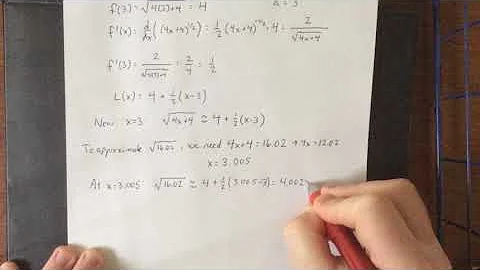 f(3) = √4(3)+4 = 4 a = 3
f'(x) = d/dx ((4x+4)^1/2) = 1/2 (4x+4)^-1/2 · 4 = 2/√4x+4
f'(3) = 2/√4(3)+4 = 2/4 = 1/2
L(x) = 4 + 1/2(x-3)
Near x=3 √4x+4 ≅ 4 + 1/2(x-3)
To approximate √16.02, we need 4x+4 = 16.02 → 4x = 12.02
x = 3.005
At x = 3.005: √16.02 ≅ 4 + 1/2(3.005-3) = 4.002